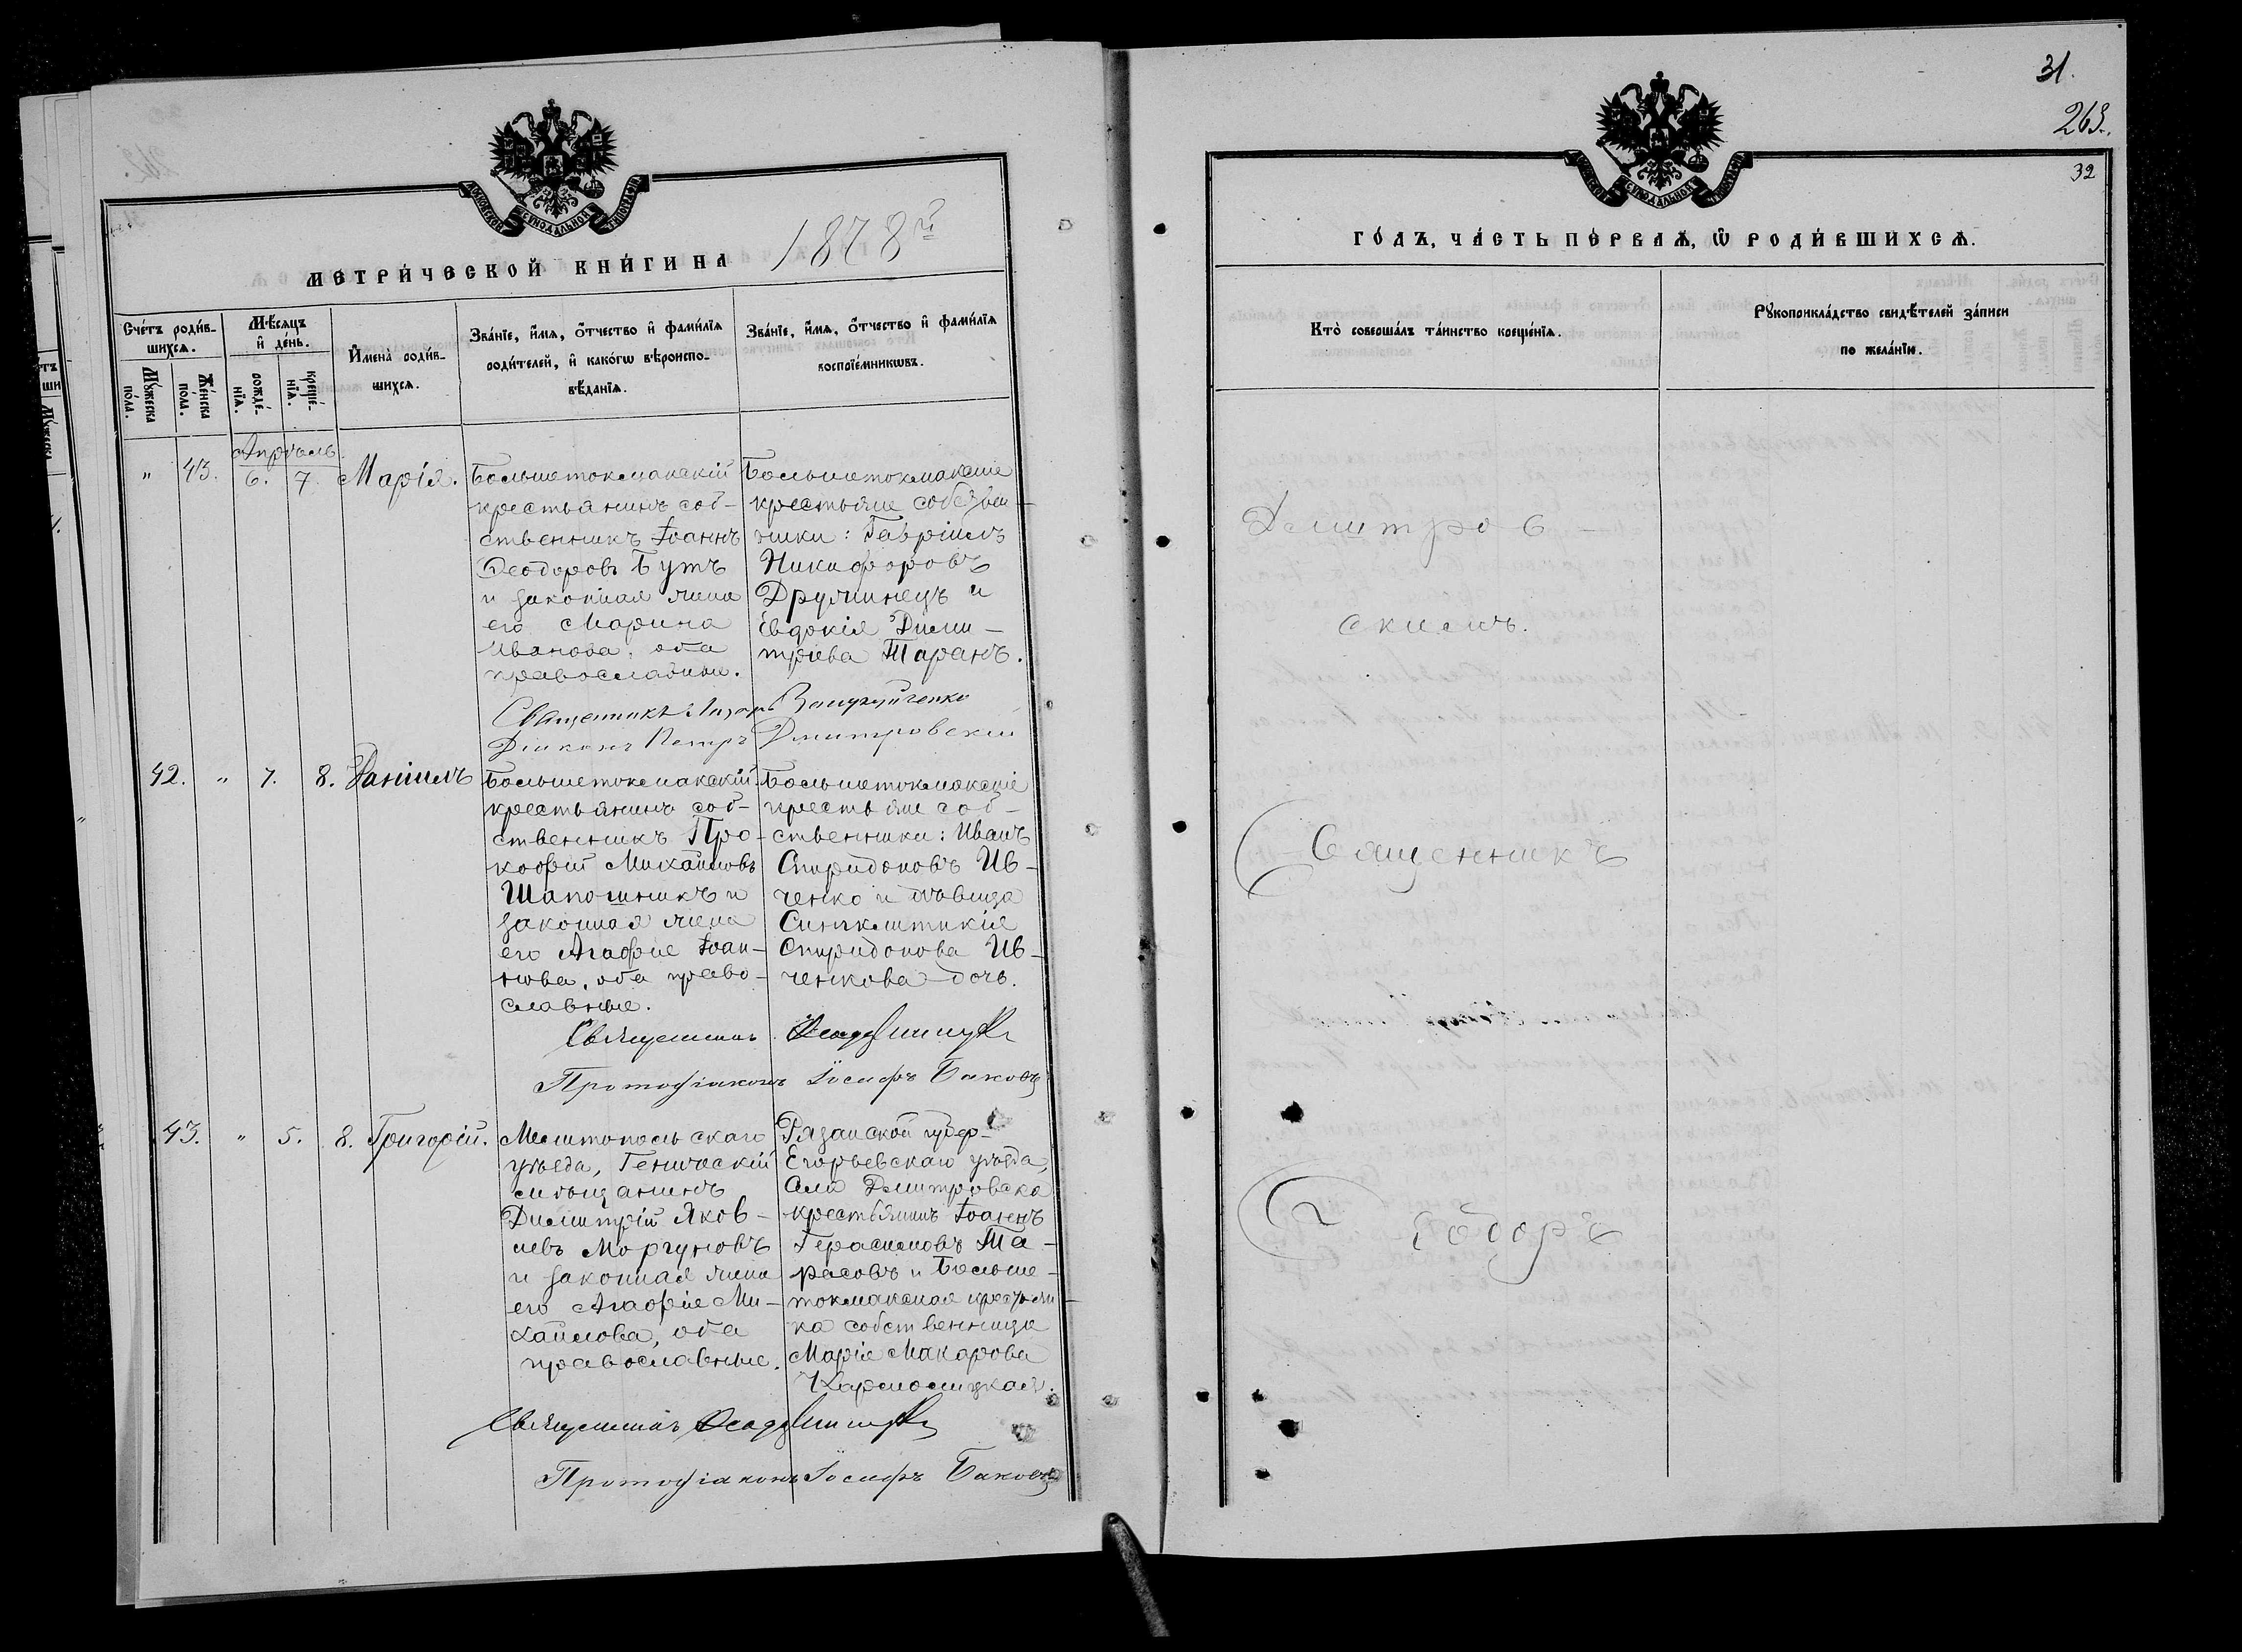 31.
263.
32
МОСКОВСКОЙ СУНОДАЛЬНОЙ ТИПОГРАФІИ
МЕТРИ́ЧЕСКОЙ КНИ́ГИ НА 1878й
Сче́тъ роди́в-
шихсѧ.
Мѣ́сѧцъ
и҆ де́нь.
Мꙋ́жеска
по́ла.
Же́нска
по́ла.
рожде́-
нїѧ.
креще́-
нїѧ.
И҆мена̀ роди́в-
шихсѧ.
Зва́нїе, и҆́мѧ, ѻ҆́тчество и҆ фами́лїѧ
роди́телей, и҆ како́гѡ вѣ́роиспо-
вѣ́данїѧ.
Зва́нїе, и҆́мѧ, ѻ҆́тчество и҆ фами́лїѧ
воспрїе́мникѡвъ.
Апрѣль.
" 43. 6. 7. Марія.
Большетокмакскій
крестьянинъ соб-
ственникъ Іоаннъ
Ѳеодоровъ Бутъ
и законная жена
его Марина
Иванова, оба
православные.
Большетокмакскіе
крестьяне собствен-
ники: Гавріилъ
Никифоровъ
Дружинецъ и
Евдокія Дими-
тріева Таранъ.
Священникъ Лазарь
Діаконъ Петръ Дмитровскій
42. " 7. 8. Даніилъ
Большетокмакскій
крестьянинъ соб-
ственникъ Про-
кофій Михайловъ
Шапошникъ и
законная жена
его Агафія Іоан-
нова, оба право-
славные.
Большетокмакскіе
крестьяне соб-
ственники: Иванъ
Спиридоновъ Ив-
ченко и дѣвица
Синклитикія
Спиридонова Ив-
ченкова дочь.
Священникъ
Протодіаконъ Іосифъ Баковъ
43. " 5. 8. Григорій.
Мелитопольскаго
уѣзда, Геническій
мѣщанинъ
Димитрій Яков-
левъ Моргуновъ
и законная жена
его Агафія Ми-
хайлова, оба
православные.
Рязанской губер-
Егорьевскаго уѣзда,
села Дмитровска
крестьянинъ Іоаннъ
Герасимовъ Та-
расовъ и Больше-
токмакская крестьян-
ка собственница
Марія Макарова
Священникъ
Протодіаконъ Іосифъ Баковъ
ГО́ДЪ, ЧА́СТЬ ПЕ́РВАѦ, Ѡ҆ РОДИ́ВШИХСѦ.
Кто̀ соверша́лъ та́инство креще́нїѧ.
Рꙋкоприкла́дство свидѣ́телей за́писи
по жела́нїю.
Димитров-
скимъ.
Священникъ
Ѳеодоръ